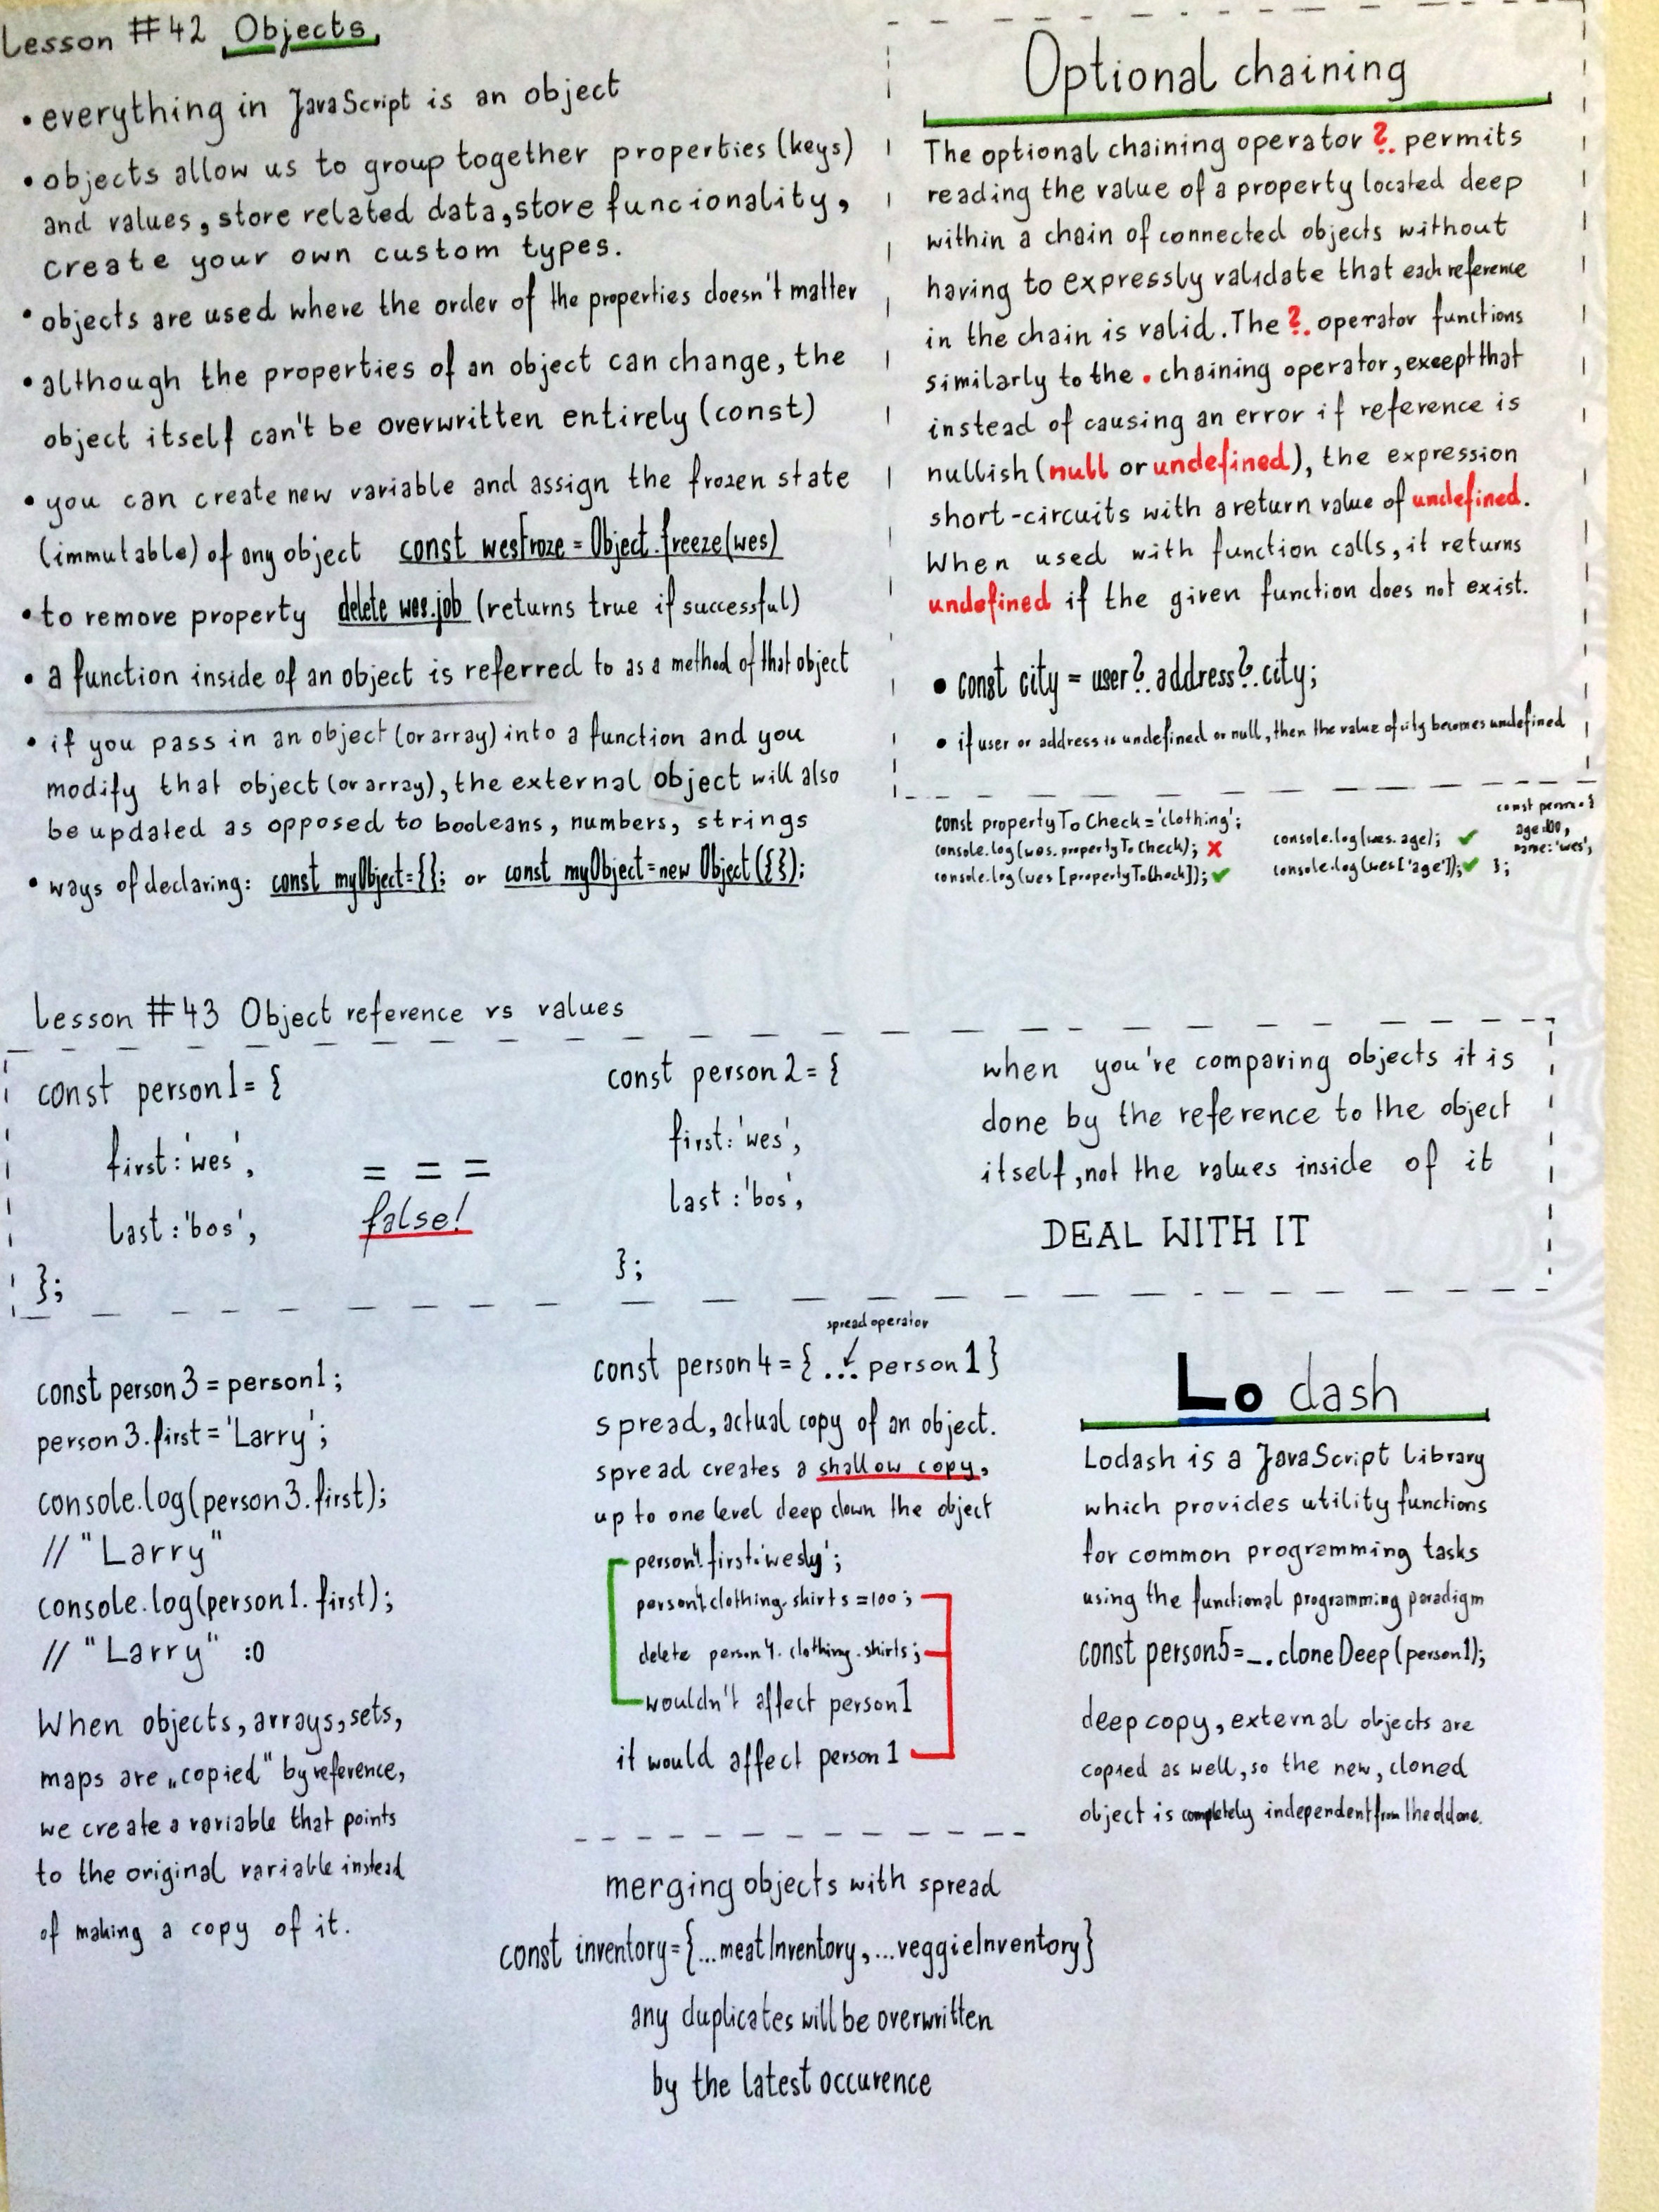 Lesson #42 Objects
• everything in JavaScript is an object
• objects allow us to group together properties (keys)
and values, store related data, store funcionality,
create your own custom types.
• objects are used where the order of the properties doesn't matter
• although the properties of an object can change, the
object itself can't be overwritten entirely (const)
• you can create new variable and assign the frozen state
(immutable) of any object const wesFroze = Object.freeze(wes)
• to remove property delete wes.job (returns true if successful)
• a function inside of an object is referred to as a method of that object
• if you pass in an object (or array) into a function and you
modify that object (or array), the external object will also
be updated as opposed to booleans, numbers, strings
• ways of declaring: const myObject={}; or const myObject=new Object({});
Optional chaining
The optional chaining operator ?. permits
reading the value of a property located deep
within a chain of connected objects without
having to expressly validate that each reference
in the chain is valid. The ?. operator functions
similarly to the . chaining operator, except that
instead of causing an error if reference is
nullish (null or undefined), the expression
short-circuits with a return value of undefined.
When used with function calls, it returns
undefined if the given function does not exist.
• const city = user?.address?.city;
• if user or address is undefined or null, then the value of city becomes undefined
const propertyToCheck = 'clothing';
console.log(wes.propertyToCheck); ✗
console.log(wes[propertyToCheck]); ✓
console.log(wes.age); ✓
console.log(wes['age']); ✓
const person = {
age:100,
name: 'wes',
};
Lesson #43 Object reference vs values
const person1 = {
first: 'wes',
last: 'bos',
};
= = =
false!
const person2 = {
first: 'wes',
last: 'bos',
};
when you're comparing objects it is
done by the reference to the object
itself, not the values inside of it
DEAL WITH IT
const person3 = person1;
person3.first = 'Larry';
console.log(person3.first);
// "Larry"
console.log(person1.first);
// "Larry" :O
When objects, arrays, sets,
maps are „copied" by reference,
we create a variable that points
to the original variable instead
of making a copy of it.
spread operator
const person4 = { ... person1}
spread, actual copy of an object.
spread creates a shallow copy,
up to one level deep down the object
person4.first='wesly';
person4.clothing.shirts =100;
delete person4.clothing.shirts;
wouldn't affect person1
it would affect person1
merging objects with spread
const inventory={...meatInventory, ...veggieInventory}
any duplicates will be overwritten
by the latest occurence
Lo dash
Lodash is a JavaScript library
which provides utility functions
for common programming tasks
using the functional programming paradigm
const person5=_.cloneDeep(person1);
deep copy, external objects are
copied as well, so the new, cloned
object is completely independent from the old one.